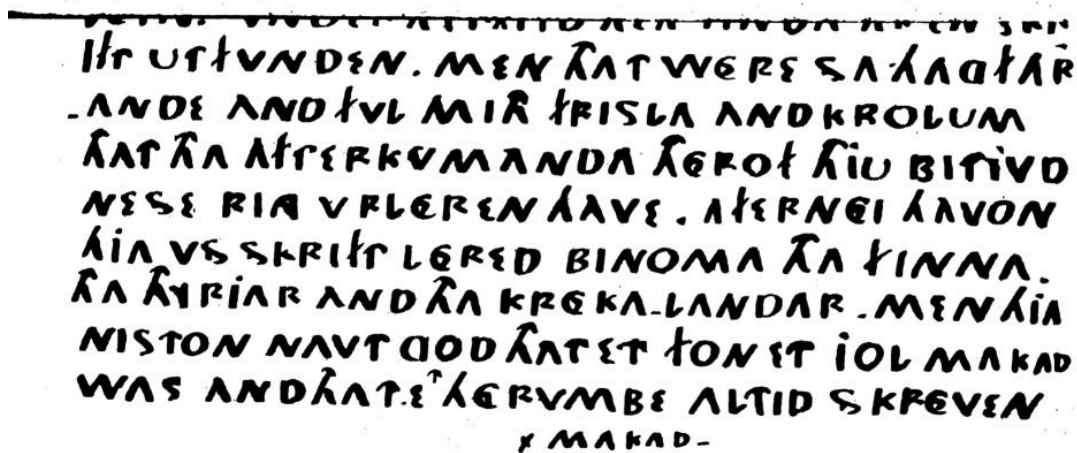 IFT UTFVNDEN. MEN THAT WERE SA HAGFAR
-ANDE AND FVL MITH FRISLA AND KROLUM
THAT THA AFTERKVMANDA THEROF THIU BITIVD
NESE RING VRLEREN HAVE. AFTERNEI HAVON
HIA VS SKRIFT LERED BINOMA THA FINNA.
THA THYRIAR AND THA KREKA-LANDAR. MEN HIA
NISTON NAVT GOD THAT ET FON ET IOL MAKAD
WAS AND THAT.ET THERVMBE ALTID SKREVEN
x MAKAD-